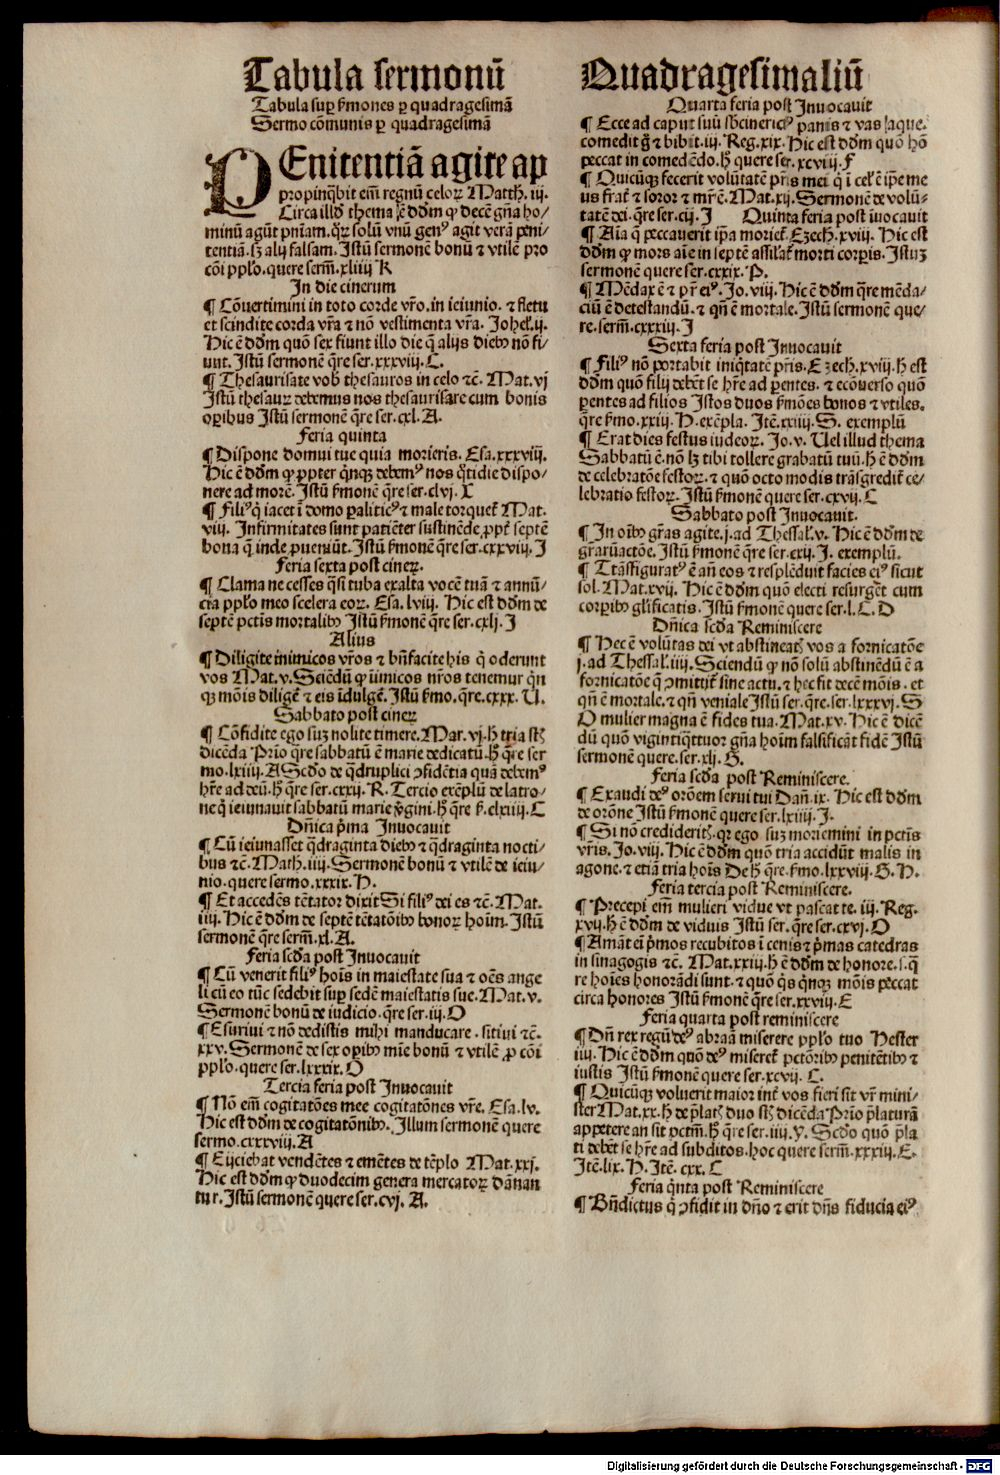 Tabula sermonū
Tabula sup̱ ẜmones ꝑ quadragesimā
Sermo cōmunis ꝑ quadragesimā
PEnitentiā agite ap
propinq̄bit em̄ regnū celoꝝ Matth. iij.
Circa illd̄ thema ē dd̄m ꝙ decē gn̄a ho/
minū agūt pn̄iam. qꝝ solū vnū genꝰ agit verā peni/
tentiā. sꝫ alij falsam. Istū sermonē bonū ⁊ vtilē pro
cōi pplo. quere serm̄. xliiij K
In die cinerum
¶ Cōuertimini in toto corde vr̄o. in ieiunio. ⁊ fletu
et scindite corda vr̄a ⁊ nō vestimenta vr̄a. Johel. ij.
Hic ē dd̄m quō sex fiunt illo die q̄ alijs dieb⁹ nō fi/
unt. Istū sermonē q̄re ser. xxxviij. C.
¶ Thesaurisate vob̄ thesauros in celo ⁊c̄. Mat. vj
Istū thesauꝝ debemus nos thesaurisare cum bonis
oꝑibus Istū sermonē q̄re ser. cxl. A.
Feria quinta
¶ Dispone domui tue quia morieris. Esa. xxxviij.
Hic ē dd̄m ꝙ ꝓpter q̄nqꝫ debemꝰ nos q̄tidie dispo/
nere ad morē. Istū ẜmonē q̄re ser. clvj. X
¶ Filiꝰ q̄ iacet ī domo ꝑaliticꝰ ⁊ male torqueẗ Mat.
viij. Infirmitates sunt patiēter sustinēde ꝓpẗ septē
bona q̄ inde ꝓueniūt. Istū ẜmonē q̄re ser. cxxviij. J
Feria sexta post cineꝝ.
¶ Clama ne cesses q̄si tuba exalta vocē tuā ⁊ annū/
cia pplo meo scelera eoꝝ. Esa. lviij. Hic est dd̄m de
septē pctis mortalib⁹ Istū ẜmonē q̄re ser. cxlj. J
Alius
¶ Diligite inimicos vr̄os ⁊ bn̄facite his q̄ oderunt
vos Mat. v. Sciēdū ꝙ inimicos nr̄os tenemur q̄n
qꝫ mōis diligē ⁊ eis īdulgē. Istū ẜmo. q̄re. cxxx. U.
Sabbato post cineꝝ
¶ Cōfidite ego suꝫ nolite timere. Mar. vj. h̄ tria st̄
dicēda Prīo q̄re sabbatū ē marie dedicatū. h̄ q̄re ser
mo. lxiiij. A Scd̄o de q̄druplici ꝯfidētia quā debemꝰ
hr̄e ad deū. h̄ q̄re ser. cxxij. R. Tercio exēplū de latro/
ne q̄ ieiunauit sabbatū marie v̄gini. h̄ q̄re ẜ. clxiij. C
Dn̄ica p̄ma Inuocauit
¶ Cū ieiunasset q̄draginta dieb⁹ ⁊ q̄draginta nocti/
bus ⁊c̄. Math. iiij. Sermonē bonū ⁊ vtilē de ieiu/
nio. quere sermo. xxxix. H.
¶ Et accedēs tētator dixit Si filiꝰ dei es ⁊c̄. Mat.
iiij. Hic ē dd̄m de septē tētatōib⁹ bonoꝝ hoīm. Istū
sermonē q̄re serm̄. xl. A.
Feria scd̄a post Inuocauit
¶ Cū venerit filiꝰ hoīs in maiestate sua ⁊ oēs ange
li cū eo tūc sedebit sup̱ sedē maiestatis sue. Mat. v.
Sermonē bonū de iudicio. q̄re ser. iij. O
¶ Esuriui ⁊ nō dedistis mihi manducare. sitiui ⁊c̄.
xxv. Sermonē de sex oꝑib⁹ mīe bonū ⁊ vtilē ꝓ cōi
pplo. quere ser. lxxxix. O
Tercia feria post Inuocauit
¶ Nō em̄ cogitatōes mee cogitatōnes vr̄e. Esa. lv.
Hic est dd̄m de cogitatōnib⁹. Illum sermonē quere
sermo. cxxxviij. A
¶ Eijciebat vendētes ⁊ emētes de tēplo Mat. xxj.
Hic est dd̄m ꝙ duodecim genera mercatoꝝ dānan
tur. Istū sermonē quere ser. cvj. A.
Quadragesimaliū
Quarta feria post Inuocauit
¶ Ecce ad caput suū sb̄cinericꝰ panis ⁊ vas aque.
comedit g̃ ⁊ bibit. iij. Reg. xix. Hic est dd̄m quō hō
peccat in comedēdo. h̄ quere ser. xcviij. F
¶ Quicūqꝫ fecerit volūtatē pr̄is mei q̄ ī cel̄ ē ip̄e me
us frat̄ ⁊ soror ⁊ mr̄ ē. Mat. xij. Sermonē de volū/
tatē dei. q̄re ser. cij. J Quinta feria post īuocauit
¶ Aīa q̄ peccauerit ip̄a morieẗ. Ezech. xviij. Hic est
dd̄m ꝙ mors aīe in septē assilaẗ morti corꝑis. Istuꝫ
sermonē quere ser. cxxix. P.
¶ Mēdax ē ⁊ pr̄ eiꝰ. Jo. viij. Hic ē dd̄m q̄re mēda/
ciū ē detestandū. ⁊ qn̄ ē mortale. Istū sermonē que/
re. serm̄. cxxxij. J
Sexta feria post Inuocauit
¶ Filiꝰ nō portabit iniq̄tatē pr̄is. Ezech. xviij. h̄ est
dd̄m quō filij debēt se hr̄e ad ꝑentes. ⁊ ecōuerso quō
ꝑentes ad filios Istos duos ẜmōes bonos ⁊ vtiles.
q̄re ẜmo. xxiij. H. exēpla. Itē. xxiiij. S. exemplū
¶ Erat dies festus iudeoꝝ. Jo. v. Uel illud thema
Sabbatū ē. nō lꝫ tibi tollere grabatū tuū. h̄ ē dd̄m
de celebratōe festoꝝ. ⁊ quō octo modis trāsgrediẗ ce/
lebratio festoꝝ. Istū ẜmonē quere ser. cxvij. C
Sabbato post Inuocauit.
¶ In oīb⁹ gr̄as agite. j. ad Thessal̄. v. Hic ē dd̄m de
graruactōe. Istū ẜmonē q̄re ser. cxij. J. exemplū.
¶ Trāsfiguratꝰ ē an̄ eos ⁊ resplēduit facies eiꝰ sicut
sol. Mat. xvij. Hic ē dd̄m quō electi resurgēt cum
corꝑib⁹ gl̄ificatis. Istū ẜmonē quere ser. l. C. D
Dn̄ica scd̄a Reminiscere
¶ Hec ē volūtas dei vt abstineatꝭ vos a fornicatōe
j. ad Thessal̄. iiij. Sciendū ꝙ nō solū abstinēdū ē a
fornicatōe q̄ ꝯmittiẗ sine actu. ⁊ hec fit decē mōis. et
qn̄ ē mortale. ⁊ qn̄ veniale Istū ser. q̄re. ser. lxxxvj. S
O mulier magna ē fides tua. Mat. xv. Hic ē dicē
dū quō vigintiq̄ttuor gn̄a hoīm falsificāt fidē Istū
sermonē quere. ser. xlj. G.
Feria scd̄a post Reminiscere.
¶ Exaudi deꝰ orōem serui tui Dan̄. ix. Hic est dd̄m
de orōne Istū ẜmonē quere ser. lxiiij. J.
¶ Si nō credideritꝭ. qꝛ ego suꝫ moriemini in pctis
vr̄is. Jo. viij. Hic ē dd̄m quō tria accidūt malis in
agone. ⁊ etiā tria hoīs De h̄ q̄re. ẜmo. lxxviij. G. H.
Feria tercia post Reminiscere.
¶ Precepi em̄ mulieri vidue vt pascat te. iij. Reg.
xvij. h̄ ē dd̄m de viduis Istū ser. q̄re ser. cxvj. O
¶ Amāt eī p̄mos recubitos ī cenis ⁊ p̄mas catedras
in sinagogis ⁊c̄. Mat. xxiij. h̄ ē dd̄m de honore. s. q̄
re hoīes honorādi sunt. ⁊ quō q̄s q̄nqꝫ mōis peccat
circa honores Istū ẜmonē q̄re ser. xxviij. E
Feria quarta post reminiscere
¶ Dn̄ rex regū deꝰ abraā miserere pplo tuo Hester
iij. Hic ē dd̄m quō deꝰ misereẗ pctōrib⁹ penitētib⁹ ⁊
iustis Istū ẜmonē quere ser. xcvij. C.
¶ Quicūqꝫ voluerit maior inẗ vos fieri sit vr̄ mini/
ster Mat. xx. h̄ de p̄latꝭ duo st̄ dicēda Prīo p̄laturā
appetere an sit pctm̄. h̄ q̄re ser. iiij. Y. Scd̄o quō p̄la
ti debēt se hr̄e ad subditos. hoc quere serm̄. xxxiij. E.
Itē. lix. H. Itē. cxx. C
Feria q̄nta post Reminiscere
¶ Bn̄dictus q̄ ꝯfidit in dn̄o ⁊ erit dn̄s fiducia eiꝰ
Digitalisierung gefördert durch die Deutsche Forschungsgemeinschaft - DFG